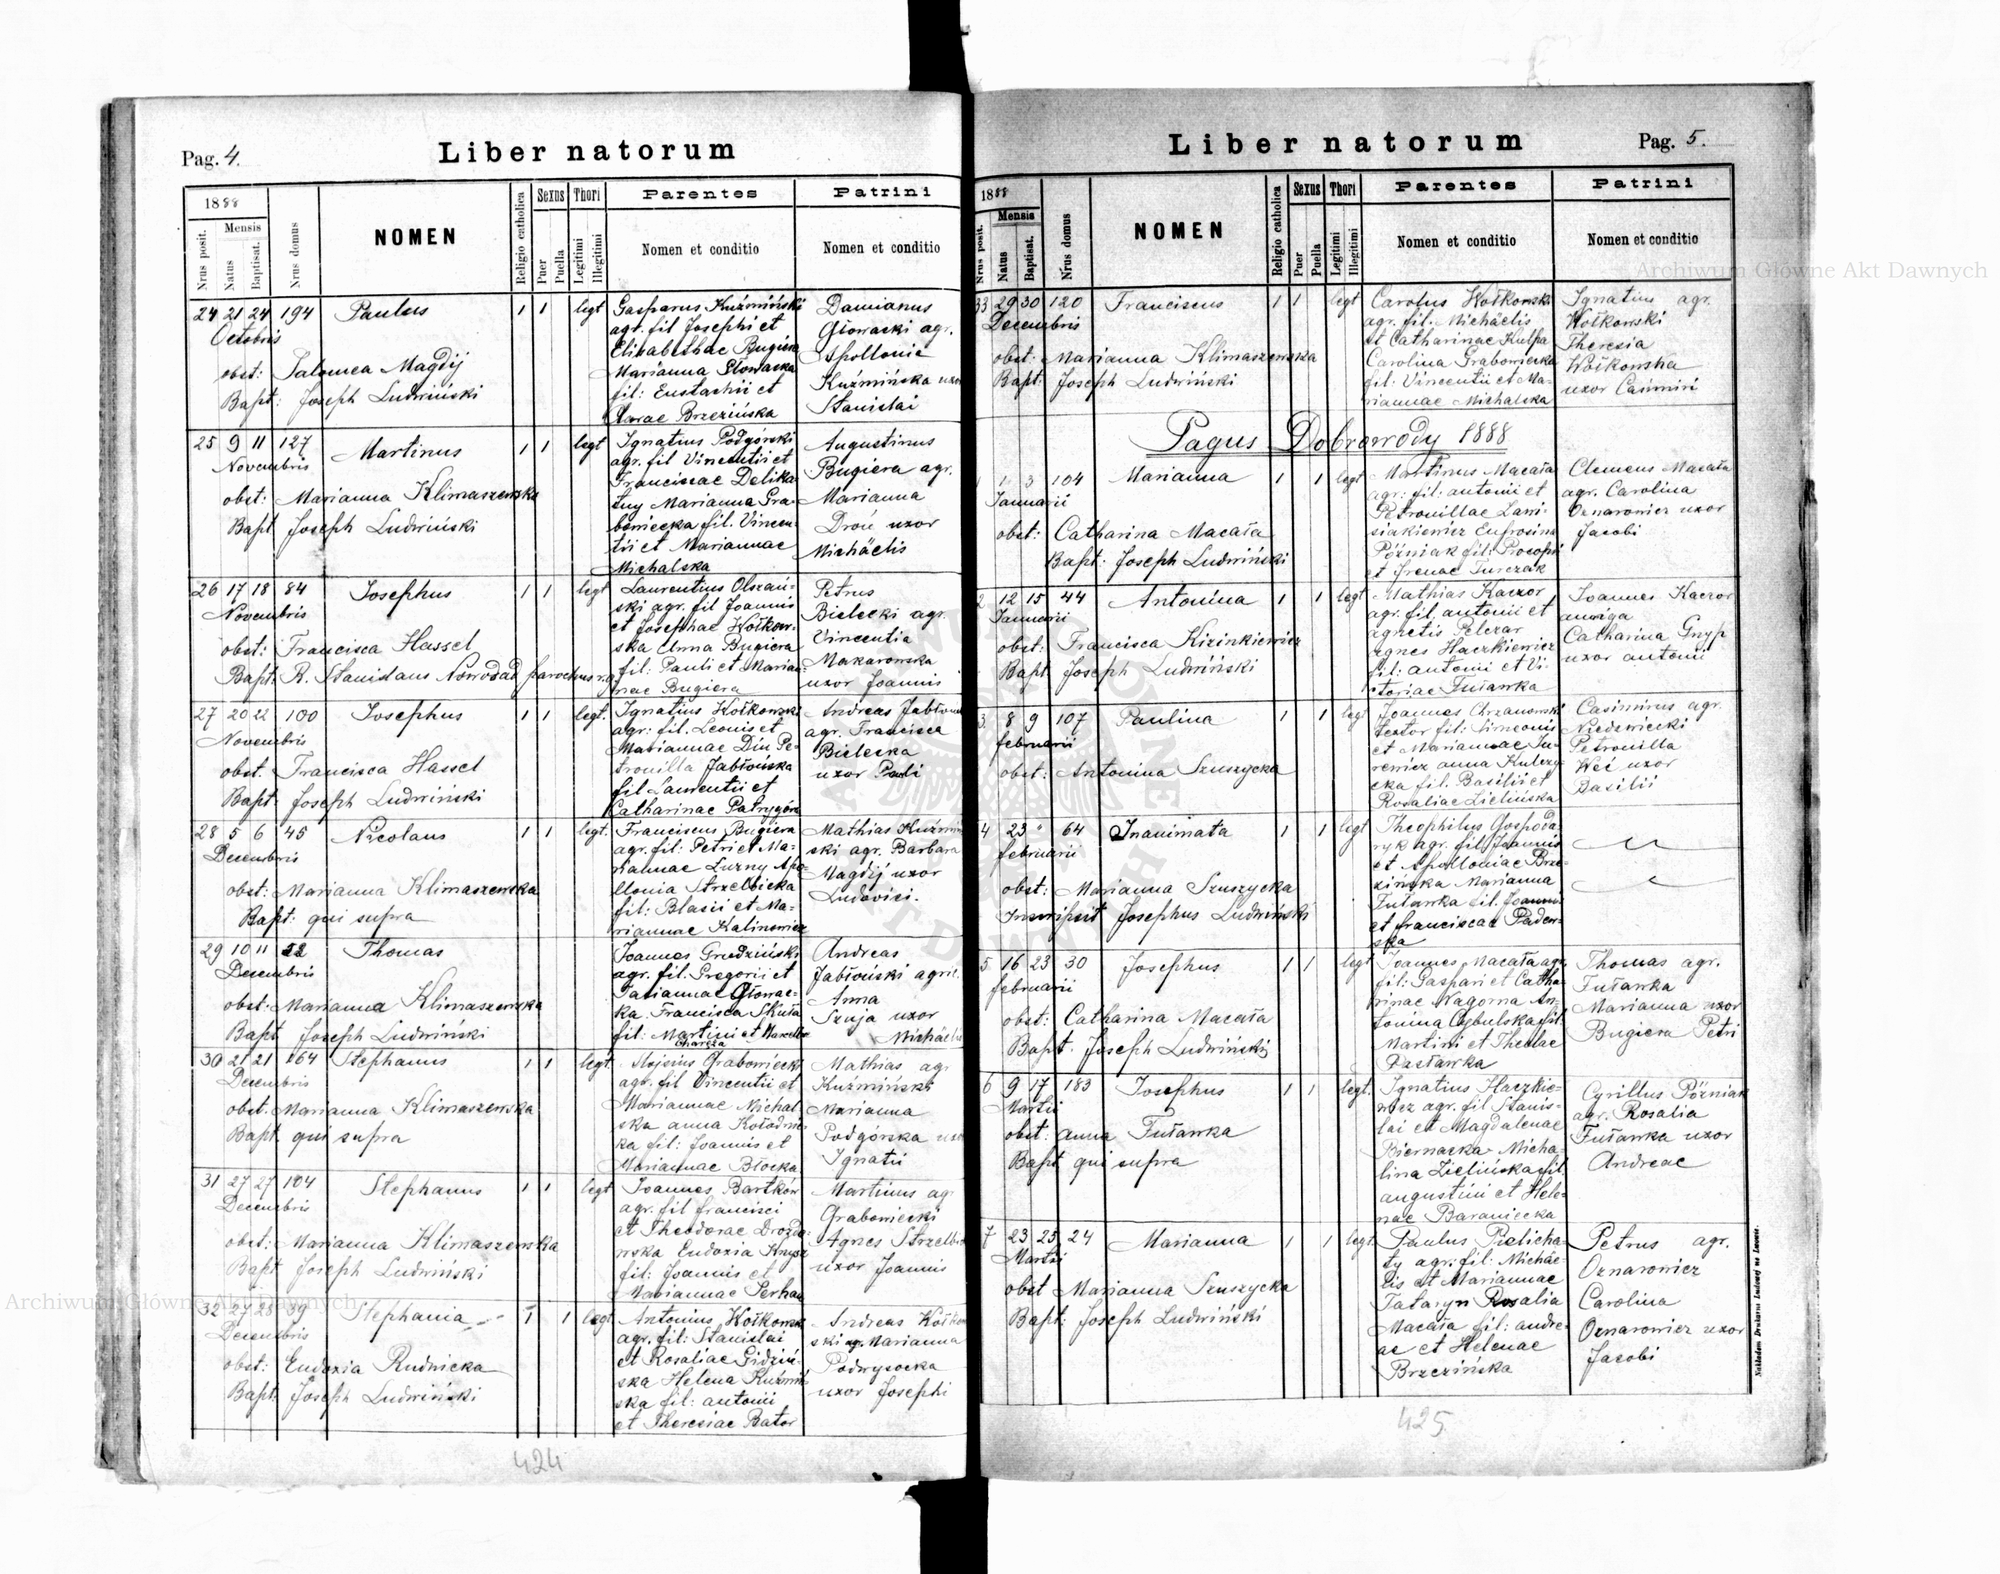 Pag. 4.
Liber natorum
1888
Nrus posit.
Mensis
Natus
Baptisat.
Nrus domus
NOMEN
Religio catholica
Sexus
Puer
Puella
Thori
Legitimi
Illegitimi
Parentes
Nomen et conditio
Patrini
Nomen et conditio
24 21 24 194 Paulus 1 1 legt
Octobris
obst: Salomea Magdij
Bapt: Joseph Ludwiński
Gasparus Kuźmiński
agr. fil Josephi et
Elisabethae Bugiera
Marianna Głowacka
fil: Eustachii et
Clarae Brzezińska
Damianus
Głowacki agr.
Apollonia
Kuźmińska uxor
Stanislai
25 9 11 127 Martinus 1 1 legt
Novembris
obst: Marianna Klimaszewska
Bapt Joseph Ludwiński
Ignatius Podgórski
agr. fil Vincentii et
Franciscae Delika
tny Marianna Gra-
bowiecka fil. Vincen-
tii et Mariannae
Michalska
Augustinus
Bugiera agr.
Marianna
uxor
Michäelis
26 17 18 84 Josephus 1 1 legt
Novembris
obst: Francisca Hassel
Bapt. R. Stanislaus parochus
Laurentius Olszań-
ski agr. fil Joannis
et Josephae Wołkow-
ska Anna Bugiera
fil: Pauli et Marian-
nae Bugiera
Petrus
Bielecki agr.
Vincentia
Makarowska
uxor Joannis
27 20 22 100 Josephus 1 1 legt.
Novembris
obst. Francisca Hassel
Bapt Joseph Ludwiński
Ignatius Wołkowski
agr: fil. Leonis et
Mariannae Pe-
tronilla Jabłońska
fil Laurentii et
Catharinae
Andreas
agr. Francisca
Bielecka
uxor Pauli
28 5 6 45 Nicolaus 1 1 legt.
Decembris
obst: Marianna Klimaszewska
Bapt: qui supra
Franciscus Bugiera
agr. fil: Petri et Ma-
riannae Luzny Apo-
llonia Strzelbicka
fil: Blasii et Ma-
riannae Kalinowicz
Mathias Kuźmiń
ski agr. Barbara
Magdij uxor
Ludovici.
29 10 11 52 Thomas
Decembris
obst: Marianna Klimaszewska
Bapt Joseph Ludwiński
Joannes Grudziński
agr. fil: Gregorii et
Tatiannae Głowac-
ka. Francisca Skuła
fil: Martini et
Andreas
Jabłoński agric.
Anna
Szuja uxor
30 21 21 164 Stephanus 1 1 legt.
Decembris
obst. Marianna Klimaszewska
Bapt qui supra
Aloisius Grabowiecki
agr. fil Vincentii et
Mariannae Michal
ska anna Kołodnic
ka fil: Joannis et
Mariannae Błocka
Mathias agr
Kuźmiński
Marianna
Podgórska uxor
Ignatii
31 27 27 104 Stephanus 1 1 legt
Decembris
obst: Marianna Klimaszewska
Bapt Joseph Ludwiński
Joannes Bartków
agr. fil francisci
et Theodorae Drozdo-
wska Eudoxia
fil: Joannis et
Mariannae
Martinus agr
Grabowiecki
Agnes
uxor Joannis
32 27 28 39 Stephania 1 1 legt
Decembris
obst: Eudoxia Rudnicka
Bapt: Joseph Ludwiński
Antonius Wołkowsk
agr. fil: Stanislai
et Rosaliae Gidziń-
ska Helena Kuźmiń
ska fil: antonii
et Theresiae Bator
Andreas
ski agr. Marianna
Podwysocka
uxor Josephi
424
Liber natorum
Pag. 5.
1888
Nrus posit.
Mensis
Natus
Baptisat.
Nrus domus
NOMEN
Religio catholica
Sexus
Puer
Puella
Thori
Legitimi
Illegitimi
Parentes
Nomen et conditio
Patrini
Nomen et conditio
33 29 30 120 Franciscus 1 1 legt
Decembris
obst: Marianna Klimaszewska
Bapt: Joseph Ludwiński
Carolus Wołkowsk
agr. fil: Michäelis
et Catharinae Kulpa
Carolina Grabowiecka
fil: Vincentii et Ma-
riannae Michalska
Ignatius agr.
Wołkowski
Theresia
Wołkowska
uxor Casimiri
Pagus Dobrowody 1888
1 1 3 104 Marianna 1 1 legt
Januarii
obst: Catharina Macała
Bapt: Joseph Ludwiński
Martinus Macała
agr: fil: antonii et
Petronillae
Eufrosina
Póżniak fil: Procopii
et Irenae Turczak
Clemens Macała
agr. Carolina
Oznarowicz uxor
Jacobi
2 12 15 44 Antonina 1 1 legt
Januarii
obst: Francisca Kizinkiewicz
Bapt Joseph Ludwiński
Mathias Kaczor
agr. fil antonii et
agnetis Pelczar
agnes Haczkiewicz
fil: antonii et Vi-
ctoriae Fuławka
Joannes Kaczor
auriga
Catharina Gnyp
uxor antonii
3 8 9 107 Paulina 1 1 legt
februarii
obst: Antonina Szuszycka
Joannes Chrzanowski
textor fil: Simeonis
et Mariannae Ju-
rewicz anna Kulczy-
cka fil. Basilii et
Rosaliae Zielińska
Casimirus agr.
Niedzwiecki
Petronilla
uxor
Basilii
4 23 " 64 Inanimata 1 1 legt
februarii
obst: Marianna Szuszycka
Inscripsit Josephus Ludwiński
Theophilus Gospoda-
ryk agr. fil Joannis
et Apolloniae Brze-
zińska Marianna
Fuławka fil. Joannis
et franciscae Padew-
ska
5 16 23 30 Josephus 1 1 legt
februarii
obst: Catharina Macała
Bapt. Joseph Ludwiński
Joannes Macała agr.
fil: Gaspari et Catha-
rinae Nagorna An-
tonina Cybulska fil.
Martini et Theclae
Pastawka
Thomas agr.
Fuławka
Marianna uxor
Bugiera Petri
6 9 17 183 Josephus 1 1 legt.
Martii
obst: anna Fuławka
Bapt qui supra
Ignatius Haczkie-
wicz agr. fil Stanis-
lai et Magdalenae
Biernacka Micha-
lina Zielińska fil
augustini et Hele-
nae Baraniecka
Cyrillus Póżniak
agr. Rosalia
Fuławka uxor
Andreae
7 23 25 24 Marianna 1 1 legt
Martii
obst Marianna Szuszycka
Bapt: Joseph Ludwiński
Paulus Pielicha-
ty agr. fil: Michäe-
lis et Mariannae
Tataryn Rosalia
Macała fil: andre-
ae et Helenae
Brzezińska
Petrus agr.
Oznarowicz
Carolina
Oznarowicz uxor
Jacobi
Nakładem Drukarni Ludowej we Lwowie.
425
Archiwum Główne Akt Dawnych
Archiwum Główne Akt Dawnych